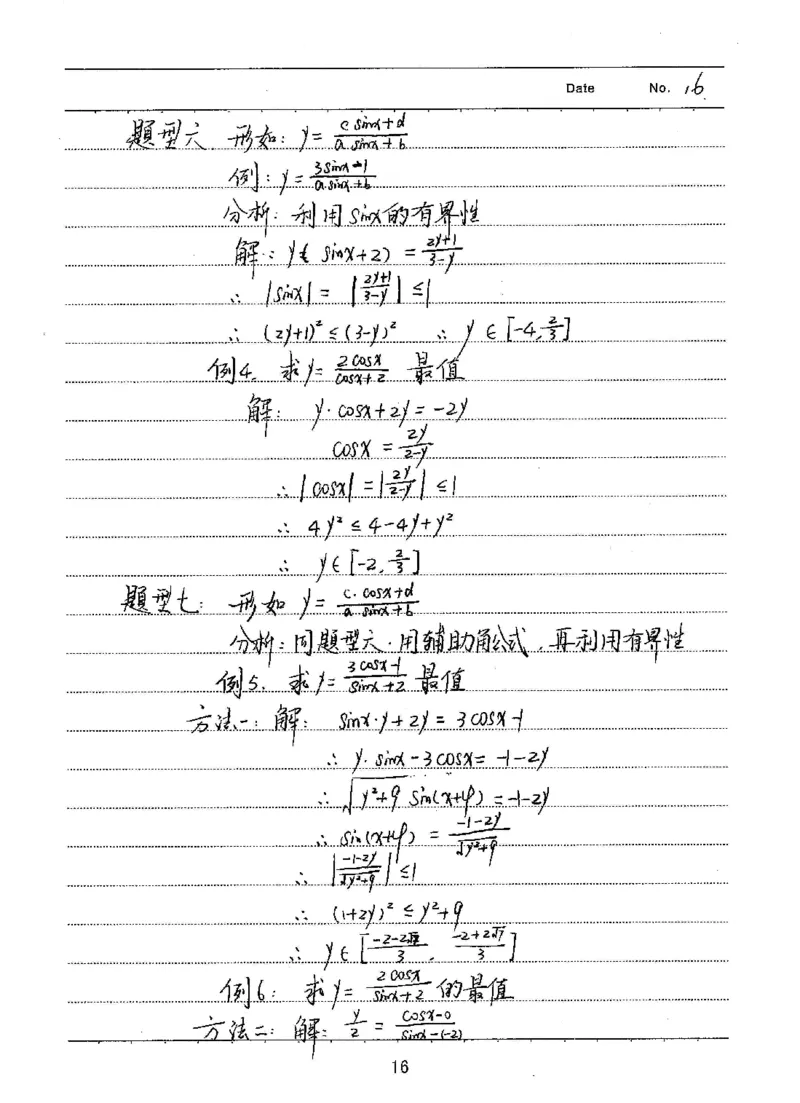 Date No. 16
题型六 形如: y = (c sinx+d)/(a sinx+b)
例: y = (3sinx-1)/(a sinx+b)
分析: 利用sinx的有界性
解: y( sinx+2) = (2y+1)/(3-y)
∴ |sinx| = |(2y+1)/(3-y)| ≤1
∴ (2y+1)² ≤ (3-y)² ∴ y ∈ [-4, 2/3]
例4. 求y = 2cosx/(cosx+2) 最值
解: y·cosx+2y = -2y
cosx = 2y/(2-y)
∴ |cosx| = |2y/(2-y)| ≤1
∴ 4y² ≤ 4-4y+y²
∴ y∈[-2, 2/3]
题型七: 形如 y = (c·cosx+d)/(a sinx+b)
分析: 同题型六·用辅助角公式, 再利用有界性
例5. 求y = (3cosx-1)/(sinx+2) 最值
方法一: 解: sinx·y+2y = 3cosx-1
∴ y·sinx-3cosx = -1-2y
∴ √(y²+9) sin(x+φ) = -1-2y
∴ sin(x+φ) = (-1-2y)/√(y²+9)
∴ |(-1-2y)/√(y²+9)| ≤1
∴ (1+2y)² ≤ y²+9
∴ y∈[(-2-2√7)/3, (-2+2√7)/3]
例6: 求y = 2cosx/(sinx+2) 的最值
方法二: 解: y/2 = (cosx-0)/(sinx-(-2))
16